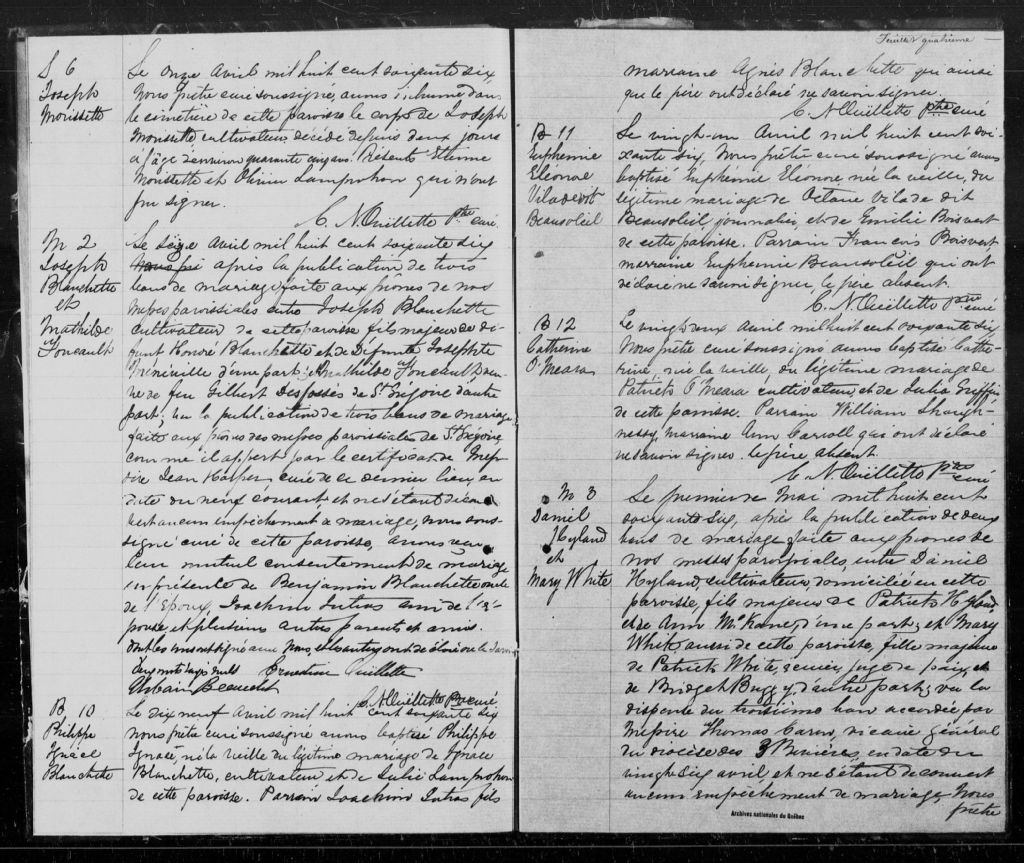 S 6
Joseph
Morissette
Le onze Avril mil huit cent soixante six
Nous prêtre curé soussigné, avons inhumé dans
le cimétière de cette paroisse le corps de Joseph
Morissette cultivateur décédé depuis deux jours
à l'âge d'environ quarante cinq ans. Présents Etienne
Morissette et Olivier Lamprohon qui n'ont
pu signer.
C. N. Ouillette Ptre curé
M 2
Joseph
Blanchette
et
Mathilde
Foucault
Le seize Avril mil huit cent soixante six
Nous prê après la publication de trois
bans de mariage faite aux prones de nos
messes paroissiales entre Joseph Blanchette
cultivateur de cette paroisse fils majeur de
Honoré Blanchette et de Défunte Josephte
d'une part; et Mathilde Foucault veu-
ve de feu Gilbert Desfossés de St Grégoire d'autre
part; vu la publication de trois bans de mariage
faite aux prones des messes paroissiales de St Grégoire
comme il appert par le certificat de Mes-
sire Jean Harper curé de ce dernier lieu, en
date du neuf courant, et ne s'étant décou-
vert aucun empêchement à mariage, nous sous-
signé curé de cette paroisse, avons reçu
leur mutuel consentement de mariage
en présence de Benjamin Blanchette oncle
de l'Epoux, Joachim Intras ami de l'é-
pouse et plusieurs autres parents et amis.
dont les uns ont signé avec Nous, et les autres ont déclaré ne le savoir
Cinq mots rayés nuls Ernestine Ouillette
Urbain Beaucourt
C. N. Ouillette Ptre curé
B 10
Philippe
Ignace
Blanchette
Le dix neuf Avril mil huit cent soixante six
nous prêtre curé soussigné avons baptisé Philippe
Ignace, né la veille du légitime mariage de Ignace
Blanchette, cultivateur et de Julie Lamprohon
de cette paroisse. Parrain Joachim Intras fils
Feuillet quatrième
marraine Agnès Blanchette qui ainsi
que le père ont déclaré ne savoir signer.
C. N. Ouillette Ptre curé
B 11
Euphémie
Eléonore
Vilade dit
Beausoleil
Le vingt-un Avril mil huit cent soi-
xante six, Nous prêtre curé soussigné avons
baptisé Euphémie Eléonore née la veille, du
légitime mariage de Octave Vilade dit
Beausoleil journalier, et de Emilie Boisvert
de cette paroisse. Parrain François Boisvert
marraine Euphémie Beausoleil qui ont
déclaré ne savoir signer, le père absent.
C. N. Ouillette Ptre curé
B 12
Catherine
O'Meara
Le vingt deux Avril mil huit cent soixante six
Nous prêtre curé soussigné avons baptisé Cathe-
rine, née la veille du légitime mariage de
Patrick O'Meara cultivateur, et de Julia Griffin
de cette paroisse. Parrain William Shaugh-
nessy, marraine Ann Carroll qui ont déclaré
ne savoir signer. le père absent.
C. N. Ouillette Ptre curé
M 3
Daniel
Hyland
et
Mary White
Le premier Mai mil huit cent
soixante six, après la publication de deux
bans de mariage faite aux prones de
nos messes paroissiales, entre Daniel
Hyland, cultivateur, domicilié en cette
paroisse, fils majeur de Patrick Hyland
et de Ann McKane d'une part; et Mary
White aussi de cette paroisse, fille majeure
de Patrick White, écuier, juge de paix, et
de Bridget Buggy, d'autre part; vu la
dispense du troisième ban accordée par
Messire Thomas Caron, vicaire général
du diocèse des 3 Rivières, en date du
vingt six avril, et ne s'étant découvert
aucun empêchement de mariage, Nous
prêtre
Archives nationales du Québec